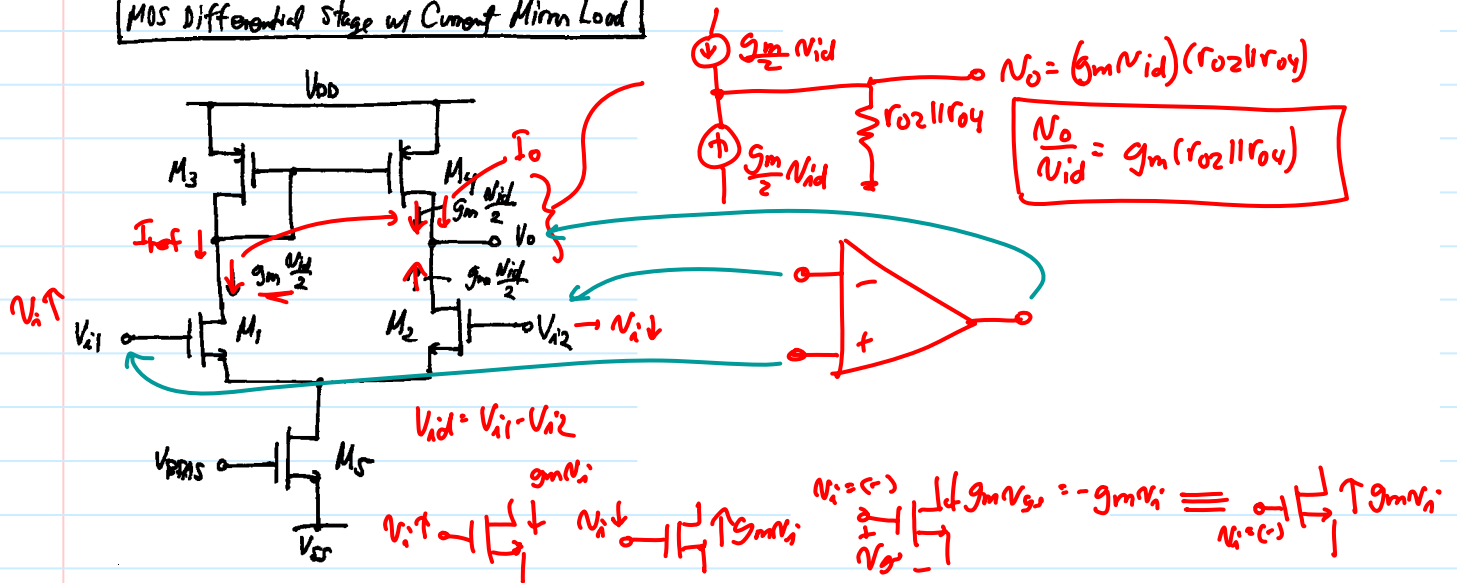 MOS Differential Stage w/ Current Mirror Load
VDD
M3
M4
Io
gm vid/2
Vo
Iref
gm vid/2
gm vid/2
Vi↑
Vi1
M1
M2
Vi2 → Vi↓
VBIAS
M5
VSS
Vid = Vi1 - Vi2
gm/2 vid
gm/2 vid
ro2||ro4
vo = (gm vid)(ro2||ro4)
vo/vid = gm(ro2||ro4)
-
+
gmvi
vi↑
vi↓
gmvi
vi=(-)
+
-
gmvgs = -gmvi ≡
vi=(-)
gmvi